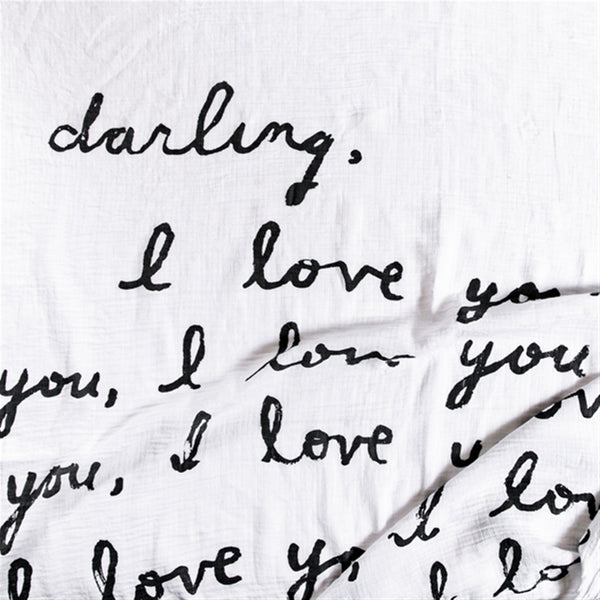 darling,
I love yo
you, I love you
you, I love
I love
I lo
I lo